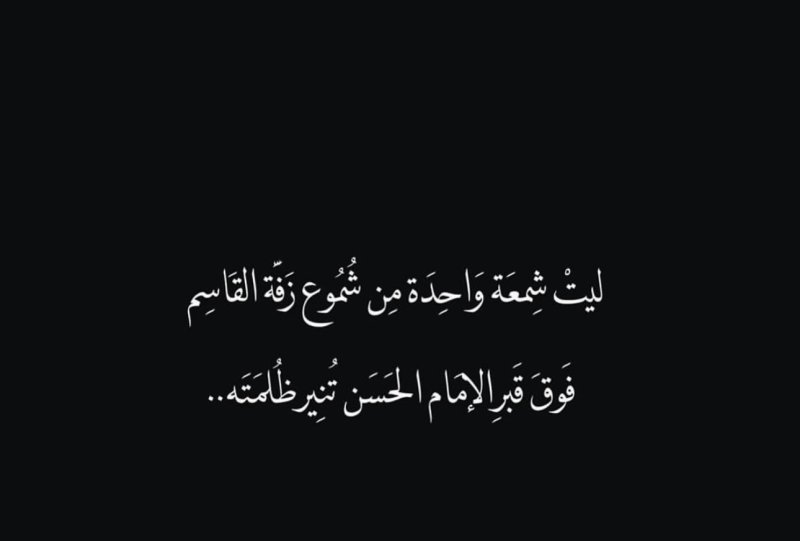 ليتْ شِمعَة وَاحِدَة مِن شُمُوع زَفّة القَاسِم
فَوقَ قَبرِ الإمَام الحَسَن تُنِير ظُلمَتَه..